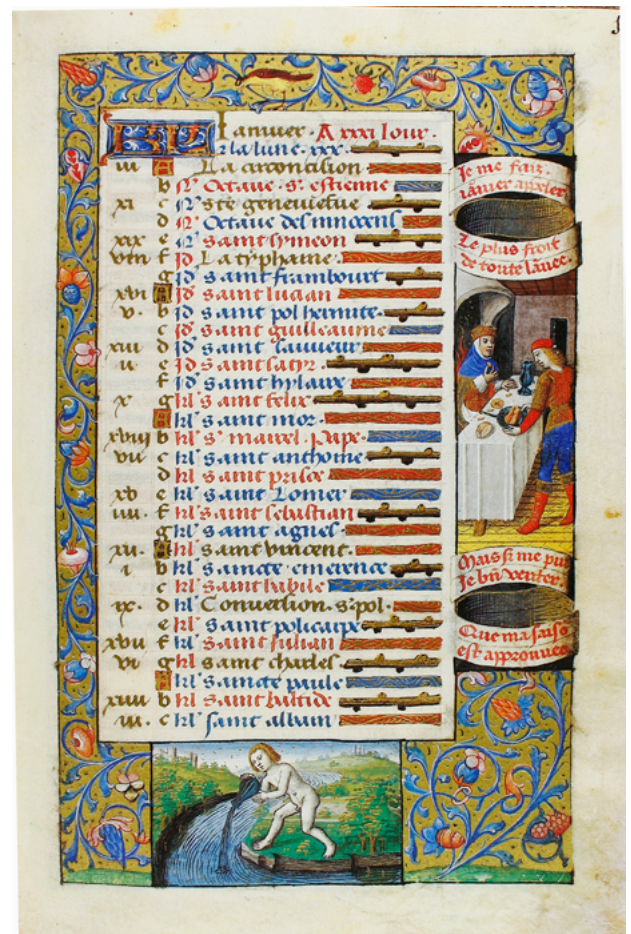 KL Januier · A xxxi Iour ·
& la lune · xxx ·
iii A La circoncision
b N⁹ Octaue · s⁹ · estienne
xi c N⁹ ste geneuiefue
d N⁹ Octaue des innocens
xix e N⁹ saint symeon
viii f Jd La typhaine ·
g Jd saint frambourt
xvi A Jd saint lucian
v · b Jd saint pol hermite ·
c Jd saint guilleaume
xiii d Jd saint sauueur
ii e Jd saint satyr
f Jd saint hylaire
x g kl saint felix
A kl saint mor ·
xviii b kl s⁹ marcel · Pape ·
vii c kl saint anthoine
d kl saint prisce
xv e kl saint Lomer
iiii · f kl saint sebastian
g kl saint agnes
xii · A kl saint vincent ·
i b kl saincte emerence
c kl saint babile
ix · d kl Conuersion · s⁹ pol ·
e kl saint policarpe
xvii f kl saint Iulian
vi g kl saint charles
A kl saincte paule
xiiii b kl saint baltide
iii · c kl saint albain
Je me fais
iãuier apeler
Le plus froit
de toute lãnee ·
Mais si me puis
Je bñ venter
Que ma saisõ
est approuuee